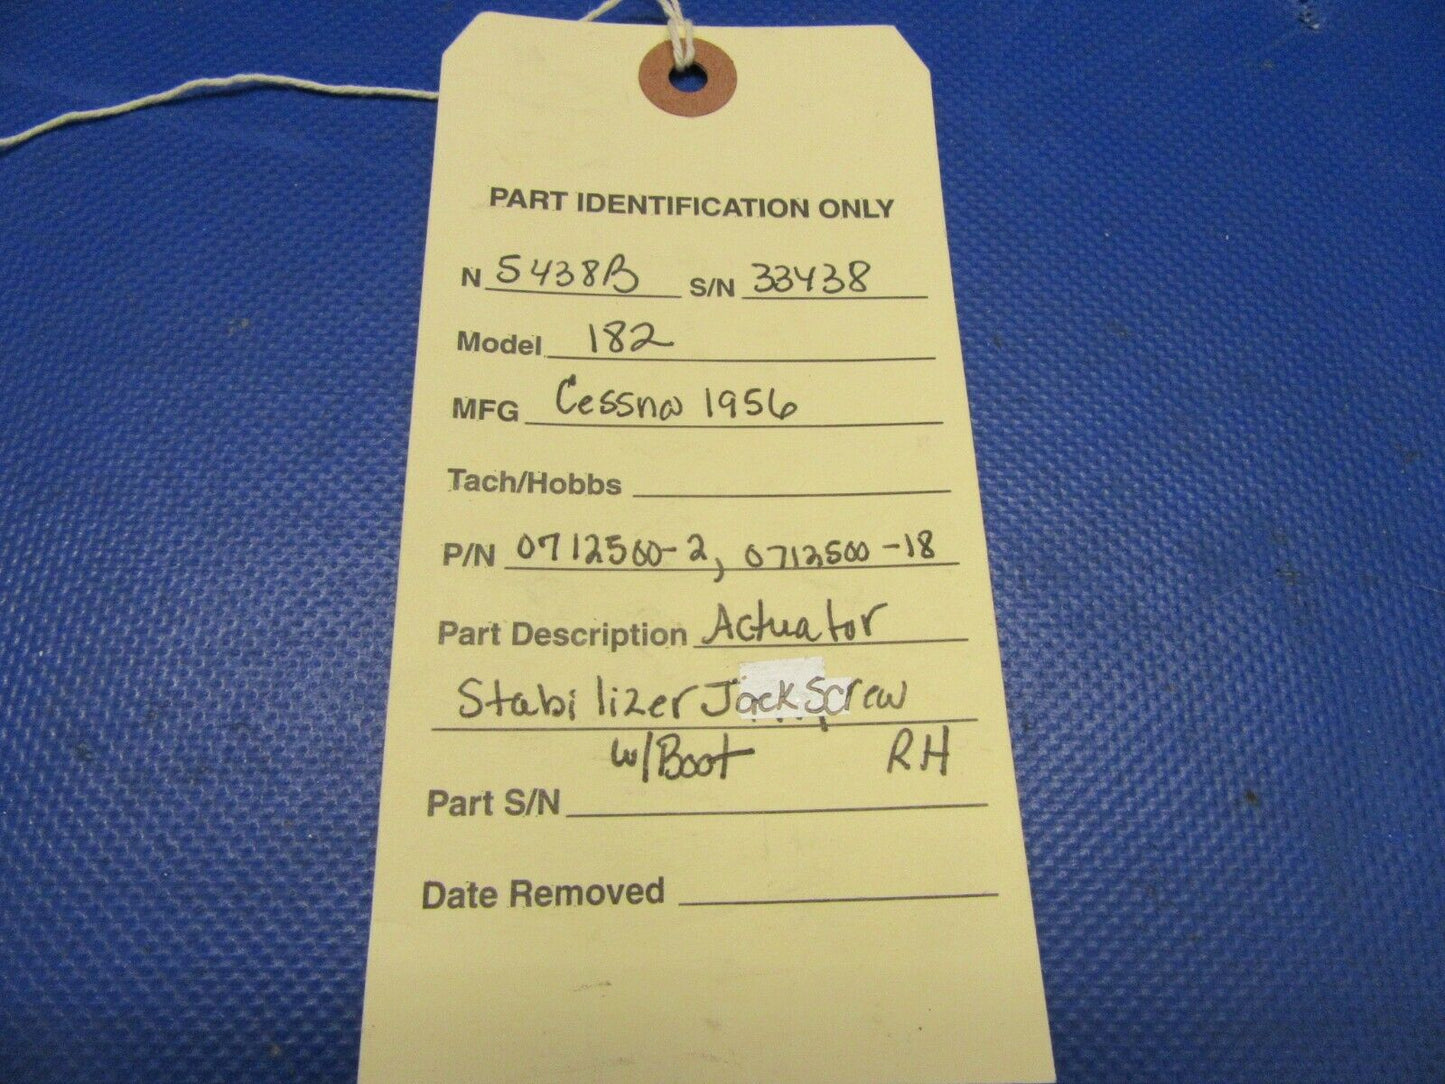 PART IDENTIFICATION ONLY
N 5438B S/N 33438
Model 182
MFG Cessna 1956
Tach/Hobbs
P/N 0712500-2, 0712500-18
Part Description Actuator
Stabilizer Jack Screw
w/Boot RH
Part S/N
Date Removed